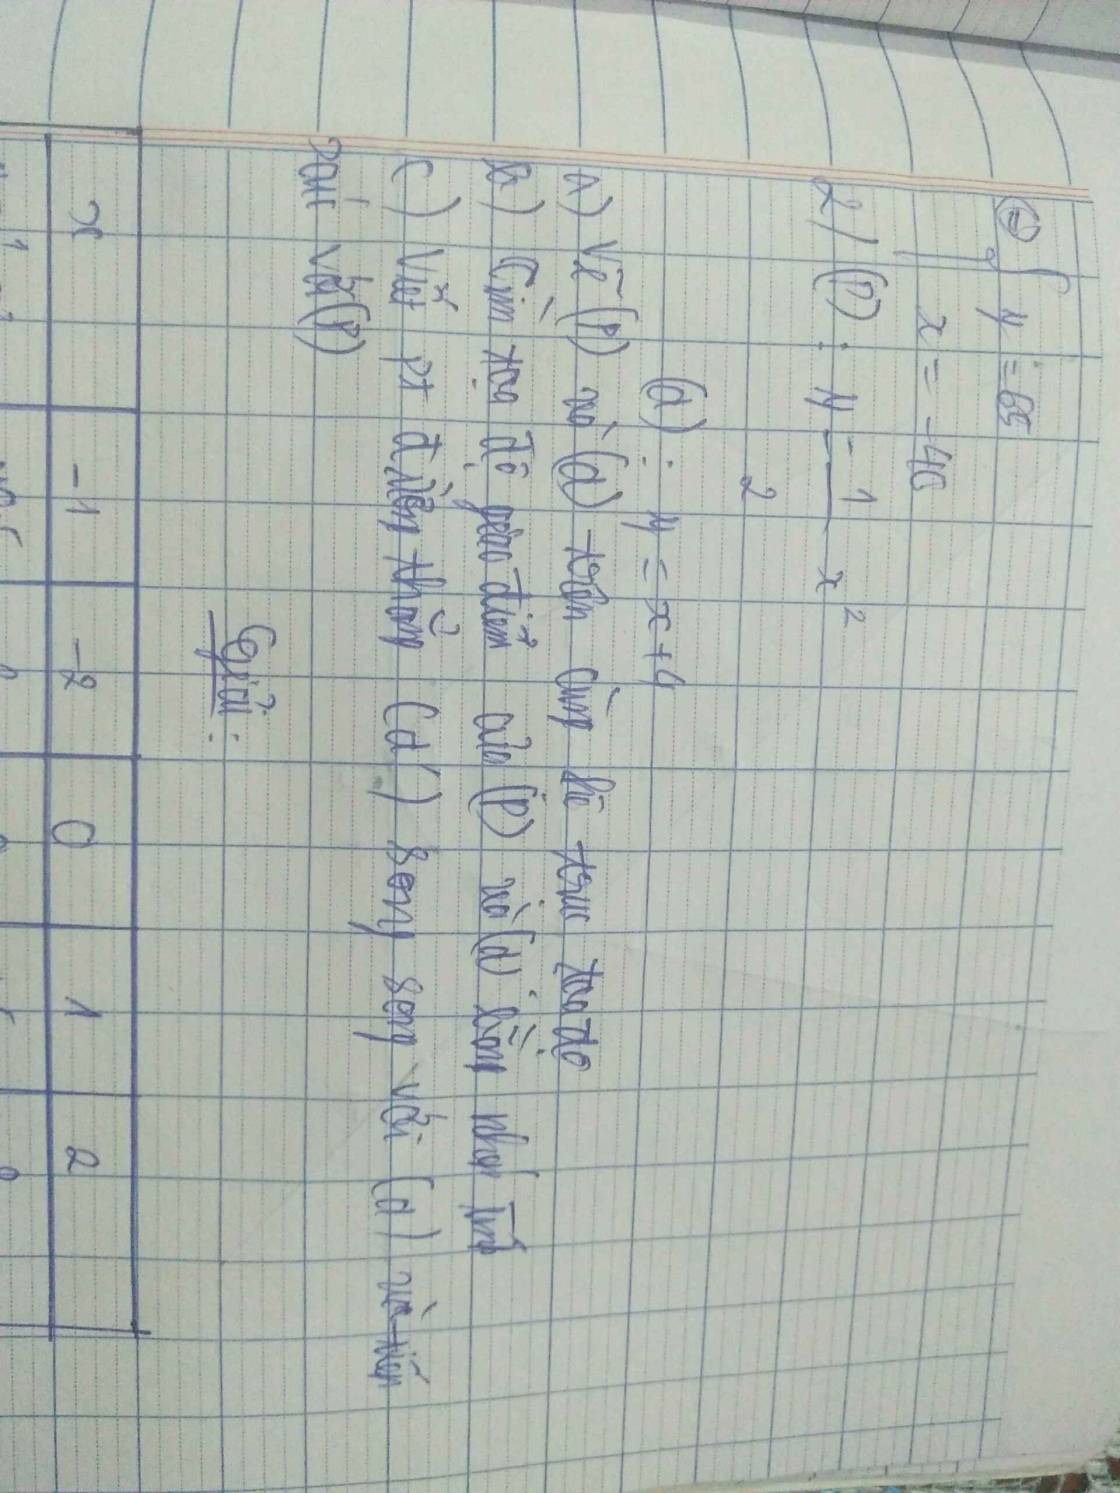 ⇔ { y = 65
x = -40
2/ (P): y = 1/2 x²
(d): y = x + 4
a) Vẽ (P) và (d) trên cùng hệ trục toạ độ
b) Tìm toạ độ giao điểm của (P) và (d) bằng phép
c) Viết pt đường thẳng (d') song song với (d) và tiếp
xúc với (P)
Giải:
x -1 -2 0 1 2